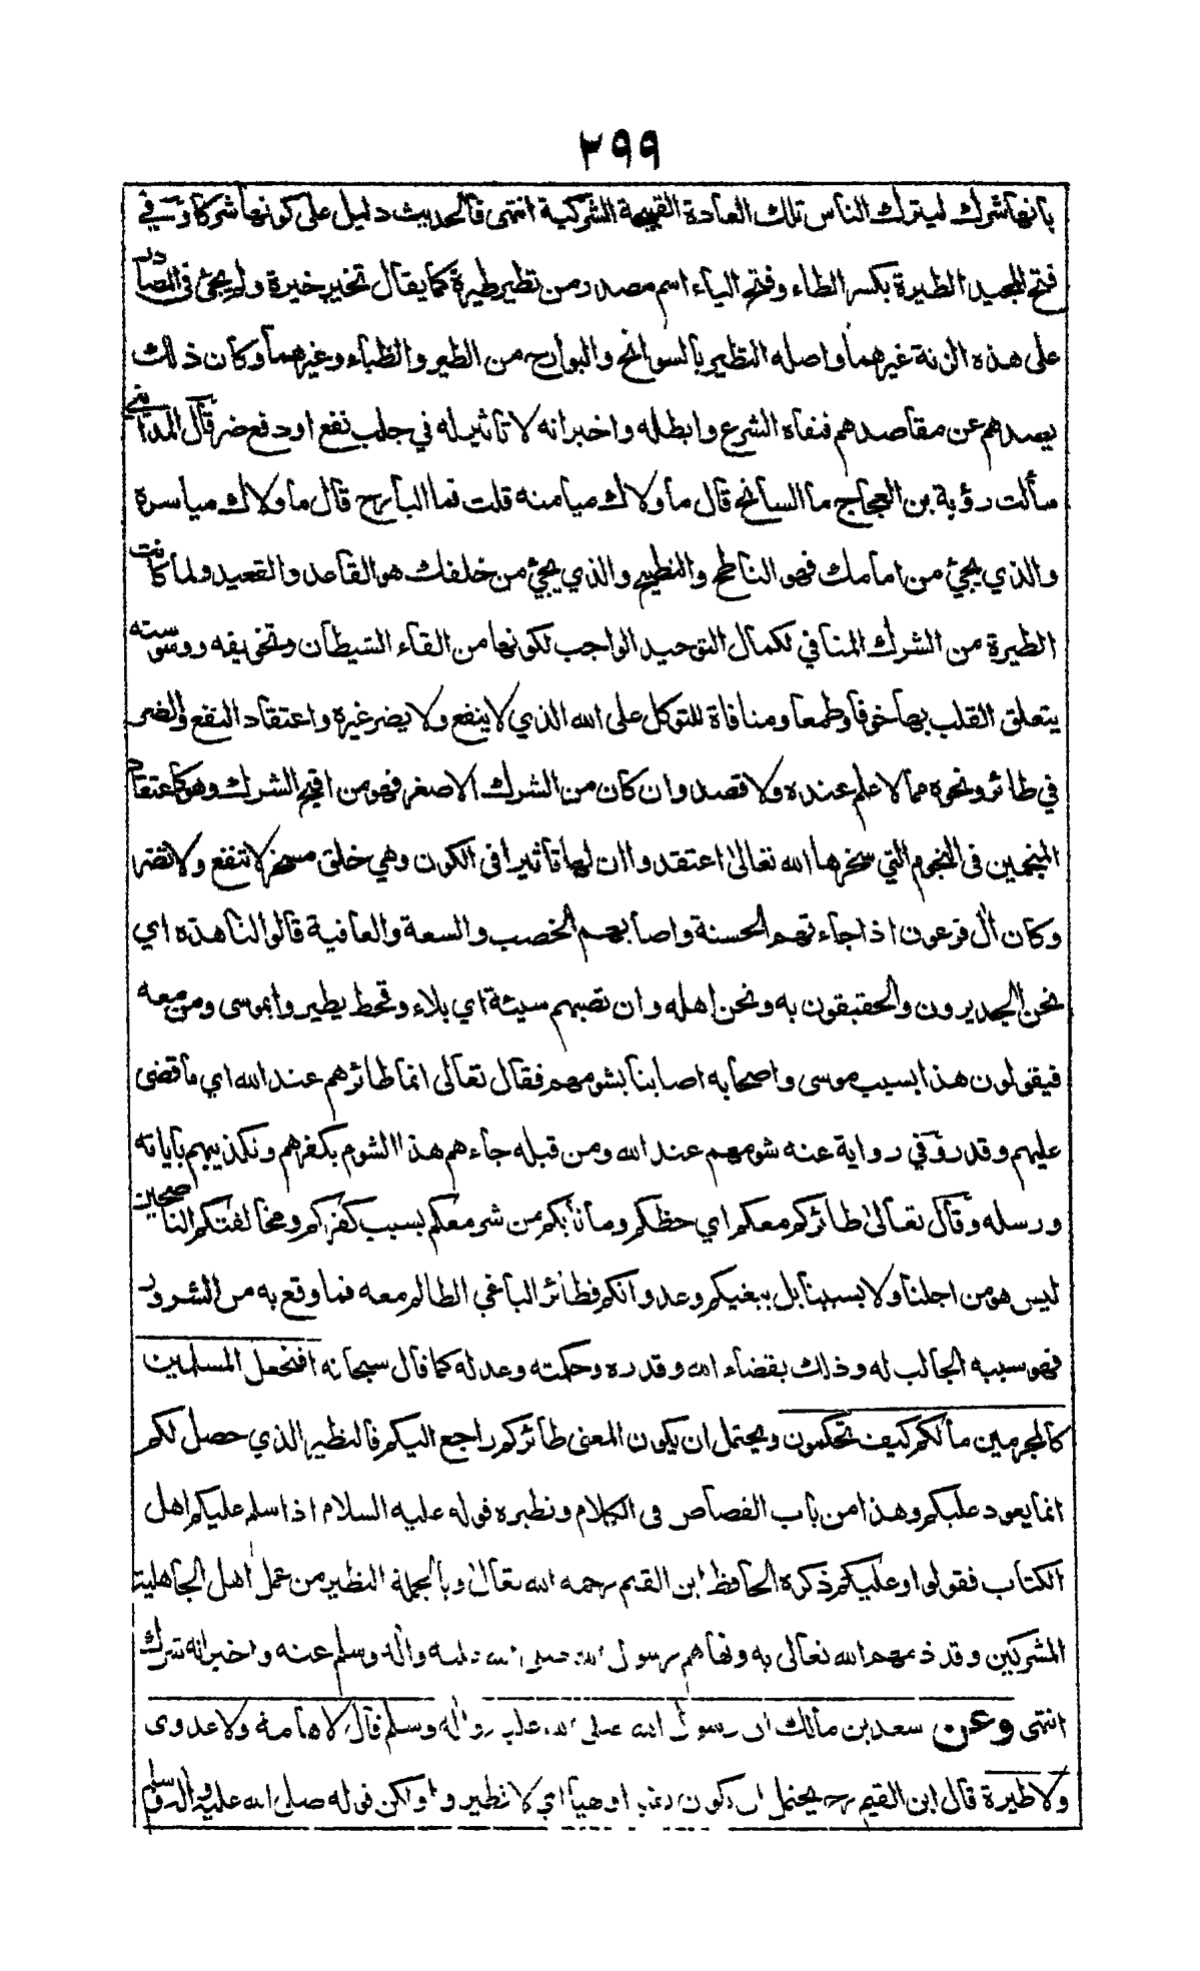 ٢٩٩
بانها شرك ليترك الناس تلك العادة القبيحة الشركية انتهى فالحديث دليل على كونها شركا و في
فتح المجيد الطيرة بكسر الطاء وفتح الياء اسم مصدر من تطير طيرة كما يقال تخير خيرة ولم يجئ في المصادر
على هذه الزنة غيرهما واصله التطير بالسوانح والبوارح من الطير والظباء وغيرهما وكان ذلك
يصدهم عن مقاصدهم فنفاه الشرع وابطله واخبر انه لا تاثير له في جلب نفع او دفع ضر قال المدائني
سألت رؤبة بن العجاج ما السانح قال ما ولاك ميامنه قلت فما البارح قال ما ولاك مياسره
والذي يجئ من امامك فهو الناطح والنطيح والذي يجئ من خلفك هو القاعد والقعيد ولما كانت
الطيرة من الشرك المنافي لكمال التوحيد الواجب لكونها من القاء الشيطان وتخويفه ووسوسته
يتعلق القلب بها خوفا وطمعا ومنافاة للتوكل على الله الذي لا ينفع ولا يضر غيره واعتقاد النفع والضر
في طائر ونحوه مما لا علم عنده ولا قصد وان كان من الشرك الاصغر فهو من اقبح الشرك وهو كاعتقاد
المنجمين في النجوم التي سخرها الله تعالى اعتقدوا ان لها تاثيرا في الكون وهي خلق مسخر لا تنفع ولا تضر
وكان ال فرعون اذا جاءتهم الحسنة واصابهم الخصب والسعة والعافية قالوا لنا هذه اي
نحن الجديرون والحقيقون به ونحن اهله وان تصبهم سيئة اي بلاء وقحط يطيروا بموسى ومن معه
فيقولون هذا بسبب موسى واصحابه اصابنا بشومهم فقال تعالى انما طائرهم عند الله اي ما قضى
عليهم وقدر وفي رواية عنه شومهم عند الله ومن قبله جاءهم هذا الشوم بكفرهم وتكذيبهم باياته
ورسله وقال تعالى طائركم معكم اي حظكم وما نابكم من شر معكم بسبب كفركم ومخالفتكم الناصحين
ليس هو من اجلنا ولا بسببنا بل ببغيكم وعدوانكم فطائر الباغي الظالم معه فما وقع به من الشرور
فهو سببه الجالب له وذلك بقضاء الله وقدره وحكمته وعدله كما قال سبحانه افنجعل المسلمين
كالمجرمين مالكم كيف تحكمون ويحتمل ان يكون المعنى طائركم راجع اليكم فالتطير الذي حصل لكم
انما يعود عليكم وهذا من باب القصاص في الكلام ونظيره قوله عليه السلام اذا سلم عليكم اهل
الكتاب فقولوا وعليكم ذكره الحافظ ابن القيم رحمه الله تعالى وبالجملة التطير من عمل اهل الجاهلية
المشركين وقد ذمهم الله تعالى به ونهاهم رسول الله صلى الله عليه واله وسلم عنه واخبر انه شرك
انتهى وعن سعد بن مالك ان رسول الله صلى الله عليه واله وسلم قال لا هامة ولا عدوى
ولا طيرة قال ابن القيم رح يحتمل ان يكون نفيا او نهيا اي لا تطيروا ولكن قوله صلى الله عليه واله وسلم